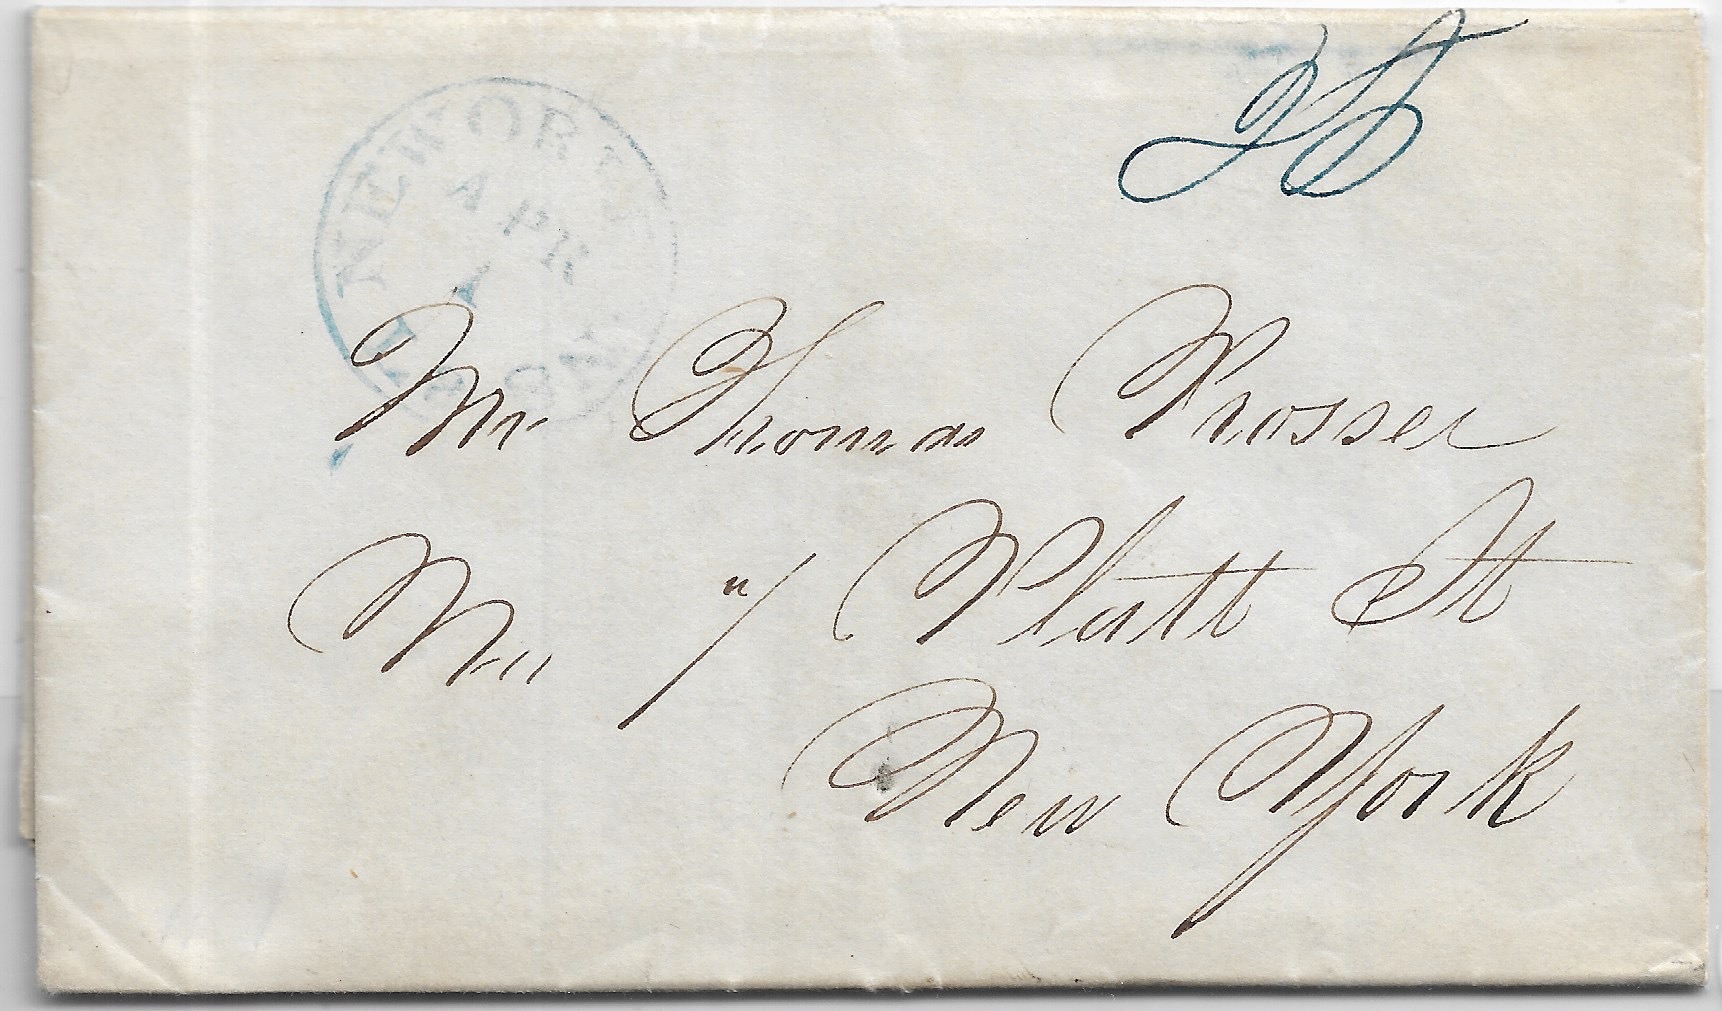 25
NEW ORLEANS
APR
1
Mr Thomas Prosser
No 7 Platt St
New York